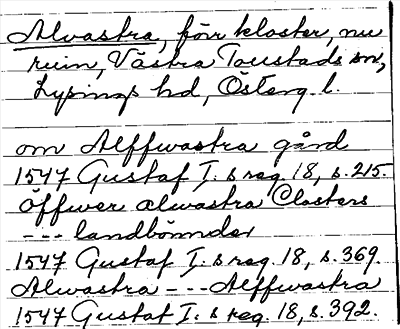 Alvastra, förr kloster, nu
ruin, Västra Tollstads sn,
Lysings hd, Österg. l.
om Alffwastra gård
1547 Gustaf I:s reg. 18, s. 215.
Öffwer alwastra Closters
--- landbönder
1547 Gustaf I:s reg. 18, s. 369.
Alwastra --- Alffwastra
1547 Gustaf I:s reg. 18, s. 392.